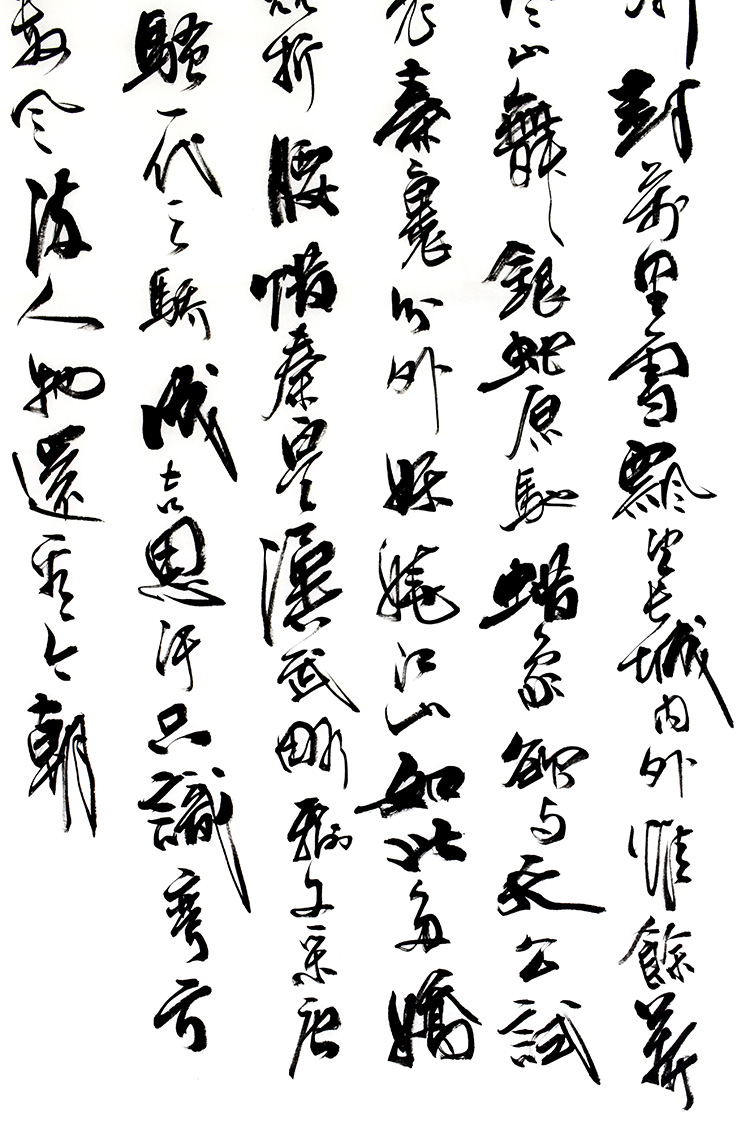 封萬里雪飄望長城內外惟餘莽
山舞銀蛇原馳蜡象欲与天公試
素裹分外妖嬈江山如此多嬌
折腰惜秦皇漢武略輸文采唐
騷一代天驕成吉思汗只識彎弓
數風流人物還看今朝